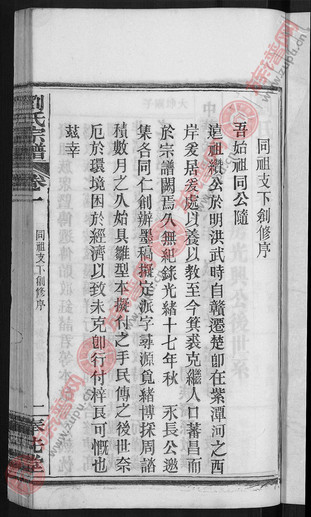 同祖支下創修序
吾始祖同公隨
這祖縱公於明洪武時自贛遷楚卽在紫潭河之西
岸爰居爰處以養以教至今箕裘克繼人口蕃昌而
於宗譜闕焉久無紀錄光緒十七年秋 永長公邀
集各同仁創辦墨稿擬定派字尋源覓緒博採周諮
積數月之久始具雛型本擬付之手民傳之後世奈
厄於環境困於經濟以致未克卽行付梓良可慨也
茲幸
劉氏宗譜
卷一
同祖支下創修序
一
堂
族譜网
www.zupu.cn